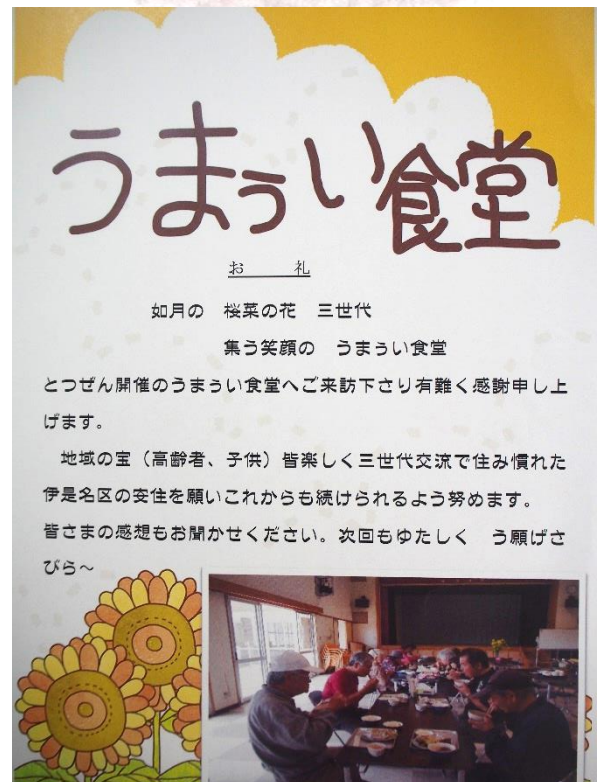 うまぅい食堂
お　　　礼
如月の　桜菜の花　三世代
集う笑顔の　うまぅい食堂
とつぜん開催のうまぅい食堂へご来訪下さり有難く感謝申し上
げます。
　地域の宝（高齢者、子供）皆楽しく三世代交流で住み慣れた
伊是名区の安住を願いこれからも続けられるよう努めます。
皆さまの感想もお聞かせください。次回もゆたしく　う願げさ
びら～